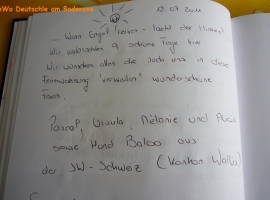 FeWo Deutschle am Bodensee
12.07.2011
- Wenn Engel reisen - lacht der Himmel
Wir verbrachten 9 schöne Tage hier
Wir wünschen allen die nach uns in dieser
Ferienwohnung 'verweilen' wunderschöne
Ferien.
Pascal, Ursula, Mélanie und
sowie Hund Baloo aus
der SW-Schweiz (Kanton Wallis)